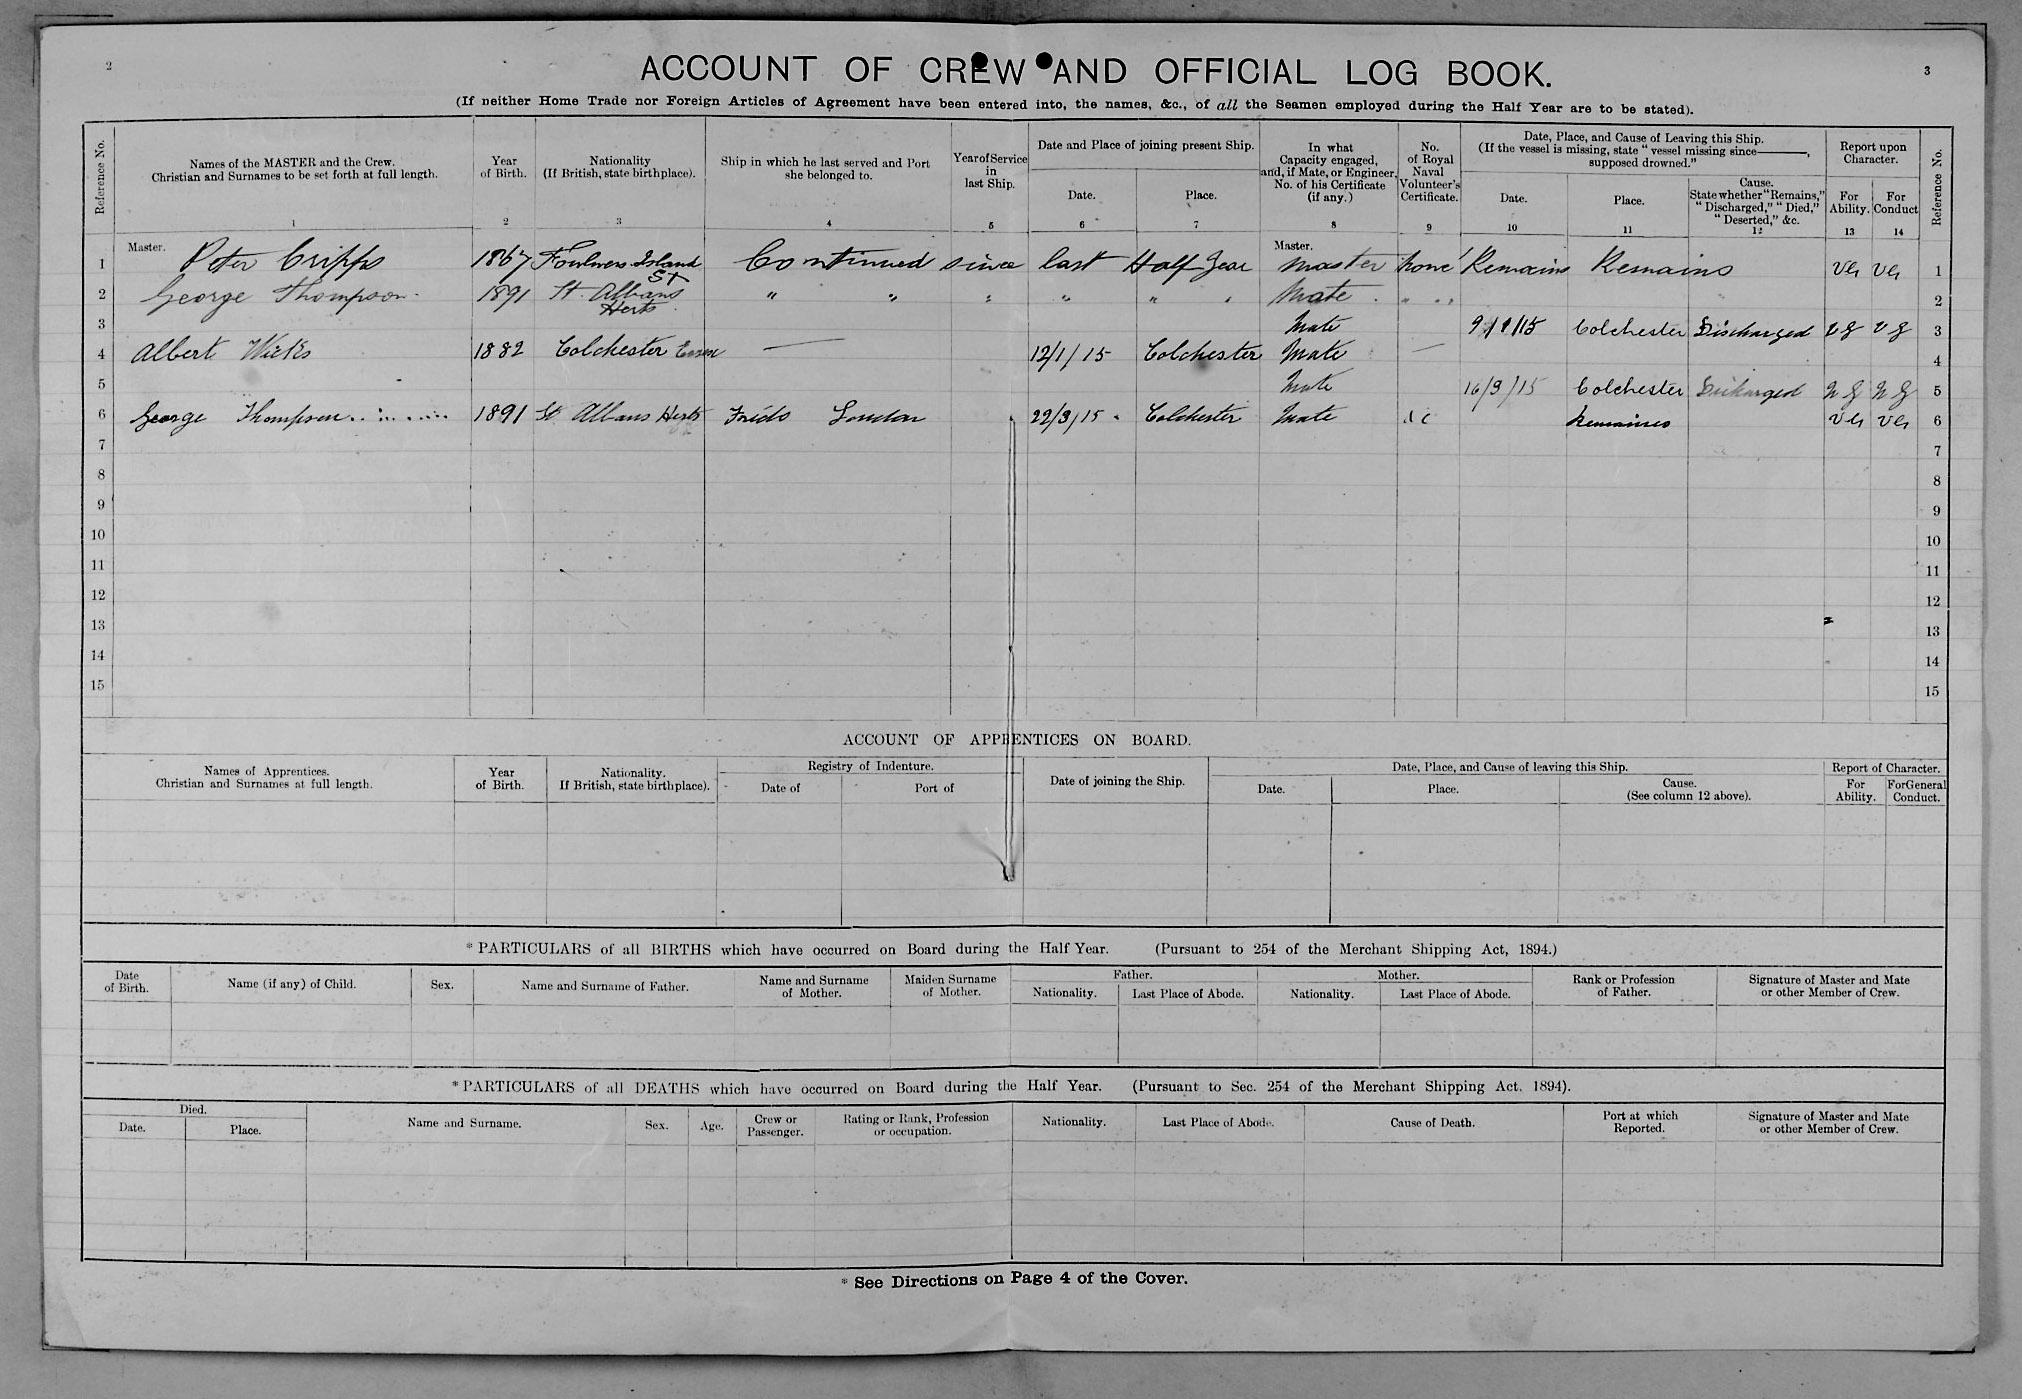 2
3
ACCOUNT OF CREW AND OFFICIAL LOG BOOK.
(If neither Home Trade nor Foreign Articles of Agreement have been entered into, the names, &c., of all the Seamen employed during the Half Year are to be stated).
Reference No.
Names of the MASTER and the Crew. Christian and Surnames to be set forth at full length. 1
Year of Birth. 2
Nationality (If British, state birthplace). 3
Ship in which he last served and Port she belonged to. 4
Year of Service in last Ship. 5
Date and Place of joining present Ship.
Date. 6
Place. 7
In what Capacity engaged, and, if Mate, or Engineer, No. of his Certificate (if any.) 8
No. of Royal Naval Volunteer's Certificate. 9
Date, Place, and Cause of Leaving this Ship. (If the vessel is missing, state "vessel missing since ———, supposed drowned."
Date. 10
Place. 11
Cause. State whether "Remains," "Discharged," "Died," "Deserted," &c. 12
Report upon Character.
For Ability. 13
For Conduct 14
Reference No.
1 Master. Peter Cripps 1867 Foulness Island Continued since last Half Year Master. Master none Remains Remains VG VG 1
2 George Thompson 1891 St. Albans Herts " " " " " " Mate " " " 2
3 Mate 9/1/15 Colchester Discharged V G V G 3
4 Albert Wicks 1882 Colchester Essex — 12/1/15 Colchester Mate — 4
5 Mate 16/3/15 Colchester Discharged 5
6 George Thompson 1891 St Albans Herts London 22/3/15 Colchester Mate Remaines VG VG 6
7 7
8 8
9 9
10 10
11 11
12 12
13 13
14 14
15 15
ACCOUNT OF APPRENTICES ON BOARD.
Names of Apprentices. Christian and Surnames at full length.
Year of Birth.
Nationality. If British, state birthplace).
Registry of Indenture.
Date of
Port of
Date of joining the Ship.
Date, Place, and Cause of leaving this Ship.
Date.
Place.
Cause. (See column 12 above).
Report of Character.
For Ability.
For General Conduct.
* PARTICULARS of all BIRTHS which have occurred on Board during the Half Year. (Pursuant to 254 of the Merchant Shipping Act, 1894.)
Date of Birth.
Name (if any) of Child.
Sex.
Name and Surname of Father.
Name and Surname of Mother.
Maiden Surname of Mother.
Father.
Nationality.
Last Place of Abode.
Mother.
Nationality.
Last Place of Abode.
Rank or Profession of Father.
Signature of Master and Mate or other Member of Crew.
* PARTICULARS of all DEATHS which have occurred on Board during the Half Year. (Pursuant to Sec. 254 of the Merchant Shipping Act. 1894).
Died.
Date.
Place.
Name and Surname.
Sex.
Age.
Crew or Passenger.
Rating or Rank, Profession or occupation.
Nationality.
Last Place of Abode.
Cause of Death.
Port at which Reported.
Signature of Master and Mate or other Member of Crew.
* See Directions on Page 4 of the Cover.